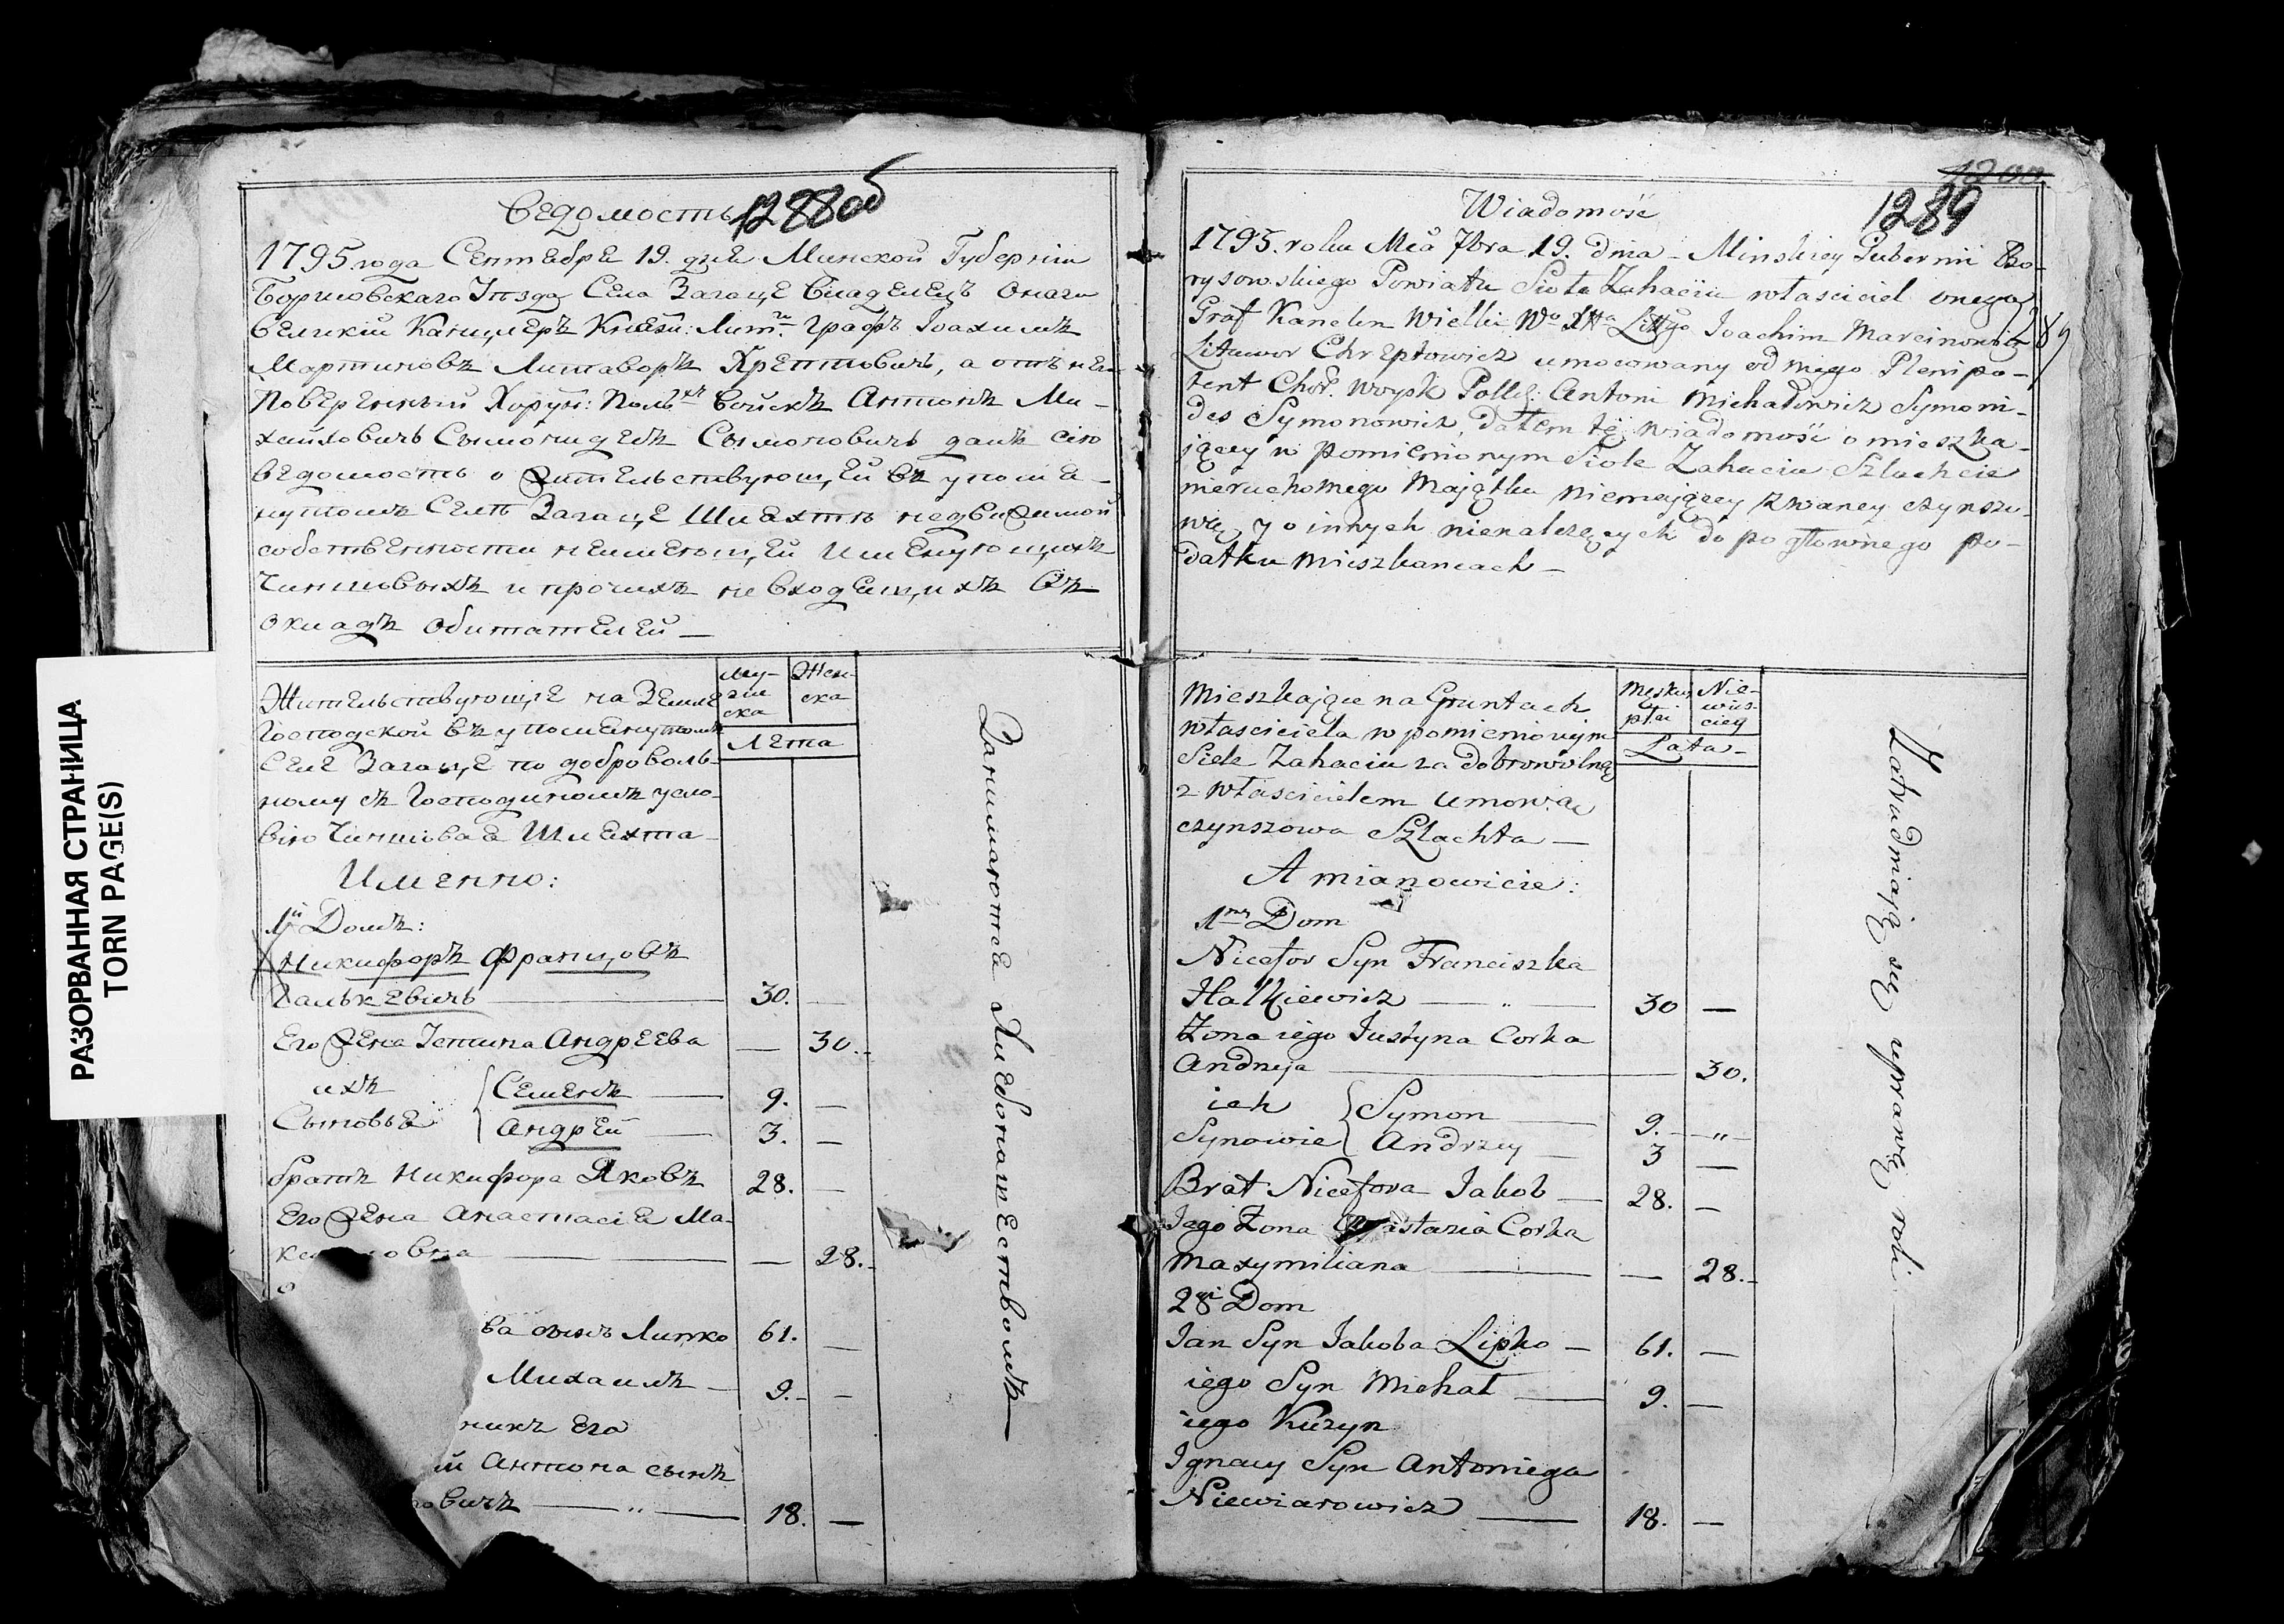 РАЗОРВАННАЯ СТРАНИЦА
TORN PAGE(S)
Ведомость
1288об
1795 года Сентебре 19. дне Минской Губерніи
Борисовскаго Уезда Села Загаце Владелецъ Онаго
Великій Канцлеръ Княз: Лит. Графъ Іоахимъ
Мартиновъ Литаворъ Хрептовичъ, а отъ нег
Поверенный Хорунж: Польхъ Войскъ Антонъ Ми-
хайловичъ Сымонидесъ Сымоновичъ далъ сію
ведомость о жительствующей въ упоме-
нутомъ Селе Загаце Шлехте недвижимой
собственности неимеющей именующихсъ
Чиншовыхъ и прочихъ не входещихъ Въ
окладъ обитателей —
Жительствующіе на Земле
Господской въ упоменутомъ
Селе Загаце по доброволь-
ному съ Господиномъ усло-
вію Чиншовае Шлехта
Муж-
ска
Жен-
ска
Лета
Именно:
1й Домъ:
Никифоръ Францовъ
Галькевичъ 30. —
Его Жена Іетина Андреева — 30.
ихъ
Сыновье
Семенъ 9. —
Андрей 3. —
братъ Никифора Яковъ 28. —
Его Жена Анастасіе Ма-
овна — 28.
ва сынъ Липко 61. —
Михаилъ 9. —
никъ Его
ій Антона сынъ
овичъ 18. —
Занимаютсе Хлебопашествомъ
Wiadomość
1200
1289
1795. roku Mca 7bra 19. dnia Minskiey Gubernii Bo-
rysowskiego Powiatu Sioła Zahacia własciciel onego
Graf Kanclerz Wielki Wo Xtta Littgo Joachim Marcinowicz
Litawor Chreptowicz umocowany od niego Plenipo-
tent Choř. woysk Polls: Antoni Michałowicz Symoni-
des Symonowicz, dałem tę wiadomość o mieszka-
jącey w pomienionym Siole Zahaciu Szlachcie
nieruchomego Majątku niemającey zwaney czynszo-
wą, y o innych nienależących do pogłownego po-
datku mieszkancach —
289
Mieszkające na Gruntach
własciciela w pomienionym
Siele Zahaciu za dobrowolną
z włascicielem umową
czynszowa Szlachta —
Męskiey
płci
Nie-
wies-
ciey
Lata
A mianowicie:
1ny Dom
Nicefor Syn Franciszka
Halkiewicz 30 —
Żona iego Justyna Corka
Andrzeja 30.
ich
Synowie
Symon 9. —
Andrzey 3 —
Brat Nicefora Jakob 28. —
Jego Żona Corka
Maxymiliana — 28.
2gi Dom
Jan Syn Jakoba Lipko — 61. —
iego Syn Michał 9. —
iego Kuzyn
Ignacy Syn Antoniego
Niewiarowicz 18. —
Zatrudniają się uprawą roli